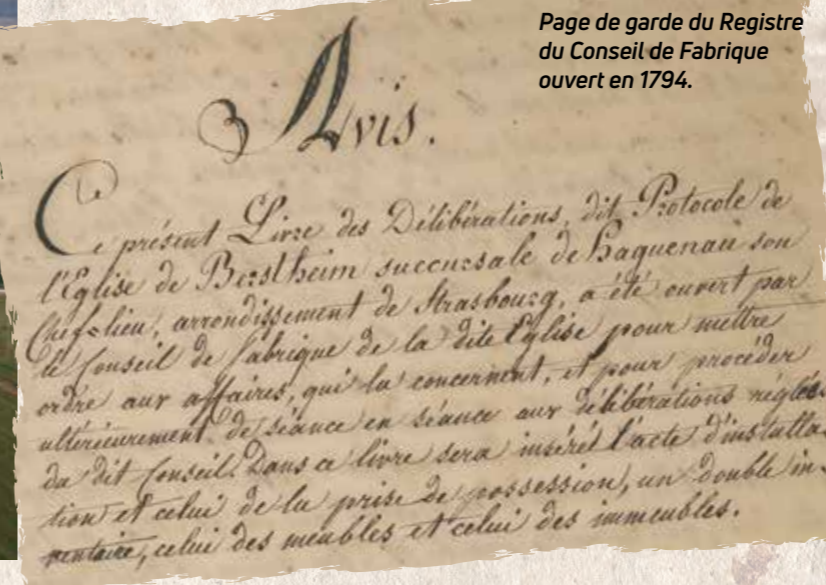 Page de garde du Registre
du Conseil de Fabrique
ouvert en 1794.
Avis.
Ce présent Livre des Délibérations, dit Protocole de
l'Eglise de Berstheim succursale de haguenau son
Chef-lieu, arrondissement de Strasbourg, a été ouvert par
le Conseil de fabrique de la dite Eglise pour mettre
ordre aux affaires, qui la concernent, et pour procéder
ultérieurement de séance en séance aux délibérations réglées
du dit Conseil. Dans ce livre sera inséré l'acte d'installa-
tion et celui de la prise de possession, un double in-
ventaire, celui des meubles et celui des immeubles.